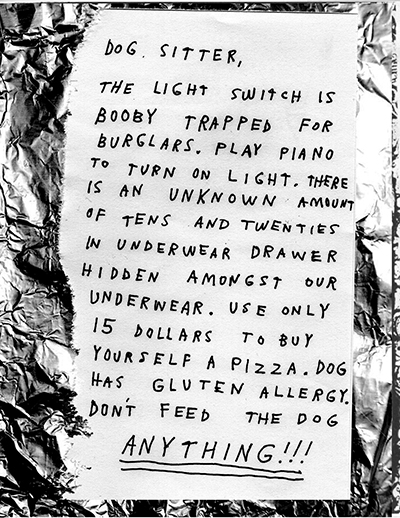 DOG. SITTER,
THE LIGHT SWITCH IS
BOOBY TRAPPED FOR
BURGLARS. PLAY PIANO
TO TURN ON LIGHT. THERE
IS AN UNKNOWN AMOUNT
OF TENS AND TWENTIES
IN UNDERWEAR DRAWER
HIDDEN AMONGST OUR
UNDERWEAR. USE ONLY
15 DOLLARS TO BUY
YOURSELF A PIZZA. DOG
HAS GLUTEN ALLERGY.
DON'T FEED THE DOG
ANYTHING!!!